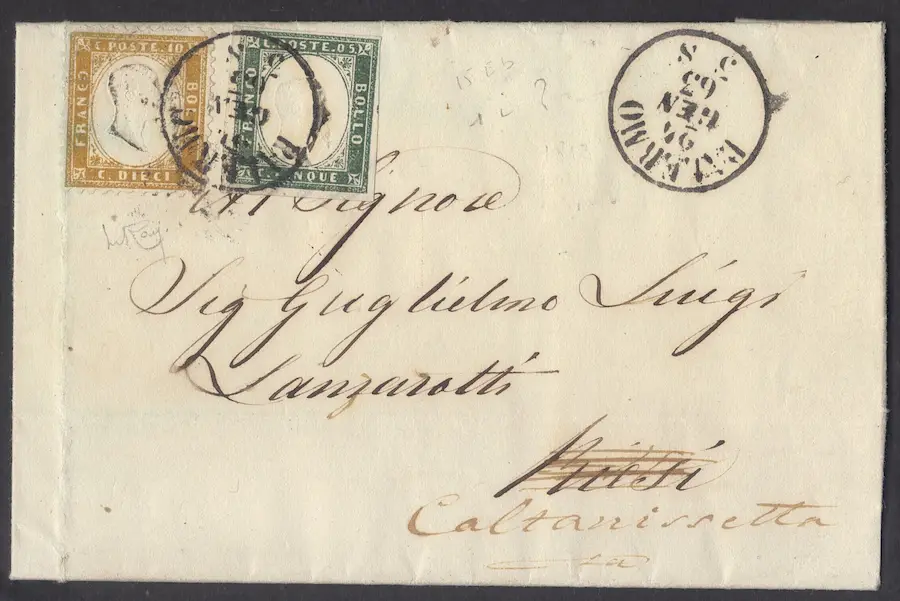 C. POSTE. 10
FRANCO
BOLLO
C. DIECI
C. POSTE. 05.
FRANCO
BOLLO
C. CINQUE
PALERMO
26
GEN
63
3 S
15 Eb
Al Signore
Sig Guglielmo Luigi
Lanzarotti
Caltanissetta